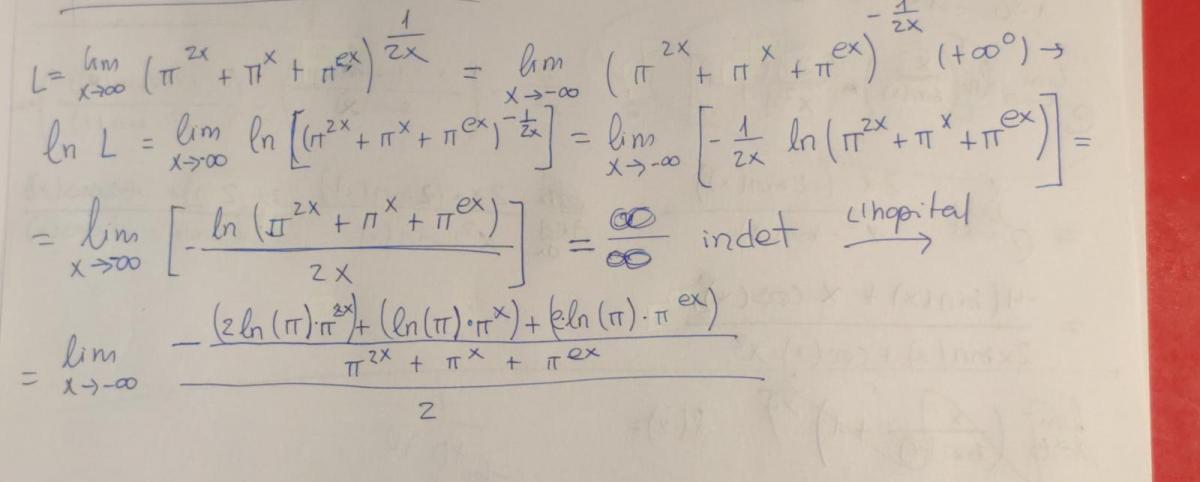 L = lim x→∞ (π^{2x} + π^x + π^{ex})^{1/2x} = lim x→-∞ (π^{2x} + π^x + π^{ex})^{-1/2x} (+∞⁰) →
ln L = lim x→-∞ ln [(π^{2x} + π^x + π^{ex})^{-1/2x}] = lim x→-∞ [-1/2x ln (π^{2x} + π^x + π^{ex})] =
= lim x→-∞ [-ln (π^{2x} + π^x + π^{ex}) / 2x] = ∞/∞ indet L'hopital →
= lim x→-∞ -((2ln(π)·π^{2x}) + (ln(π)·π^x) + (e·ln(π)·π^{ex})) / (π^{2x} + π^x + π^{ex}) / 2